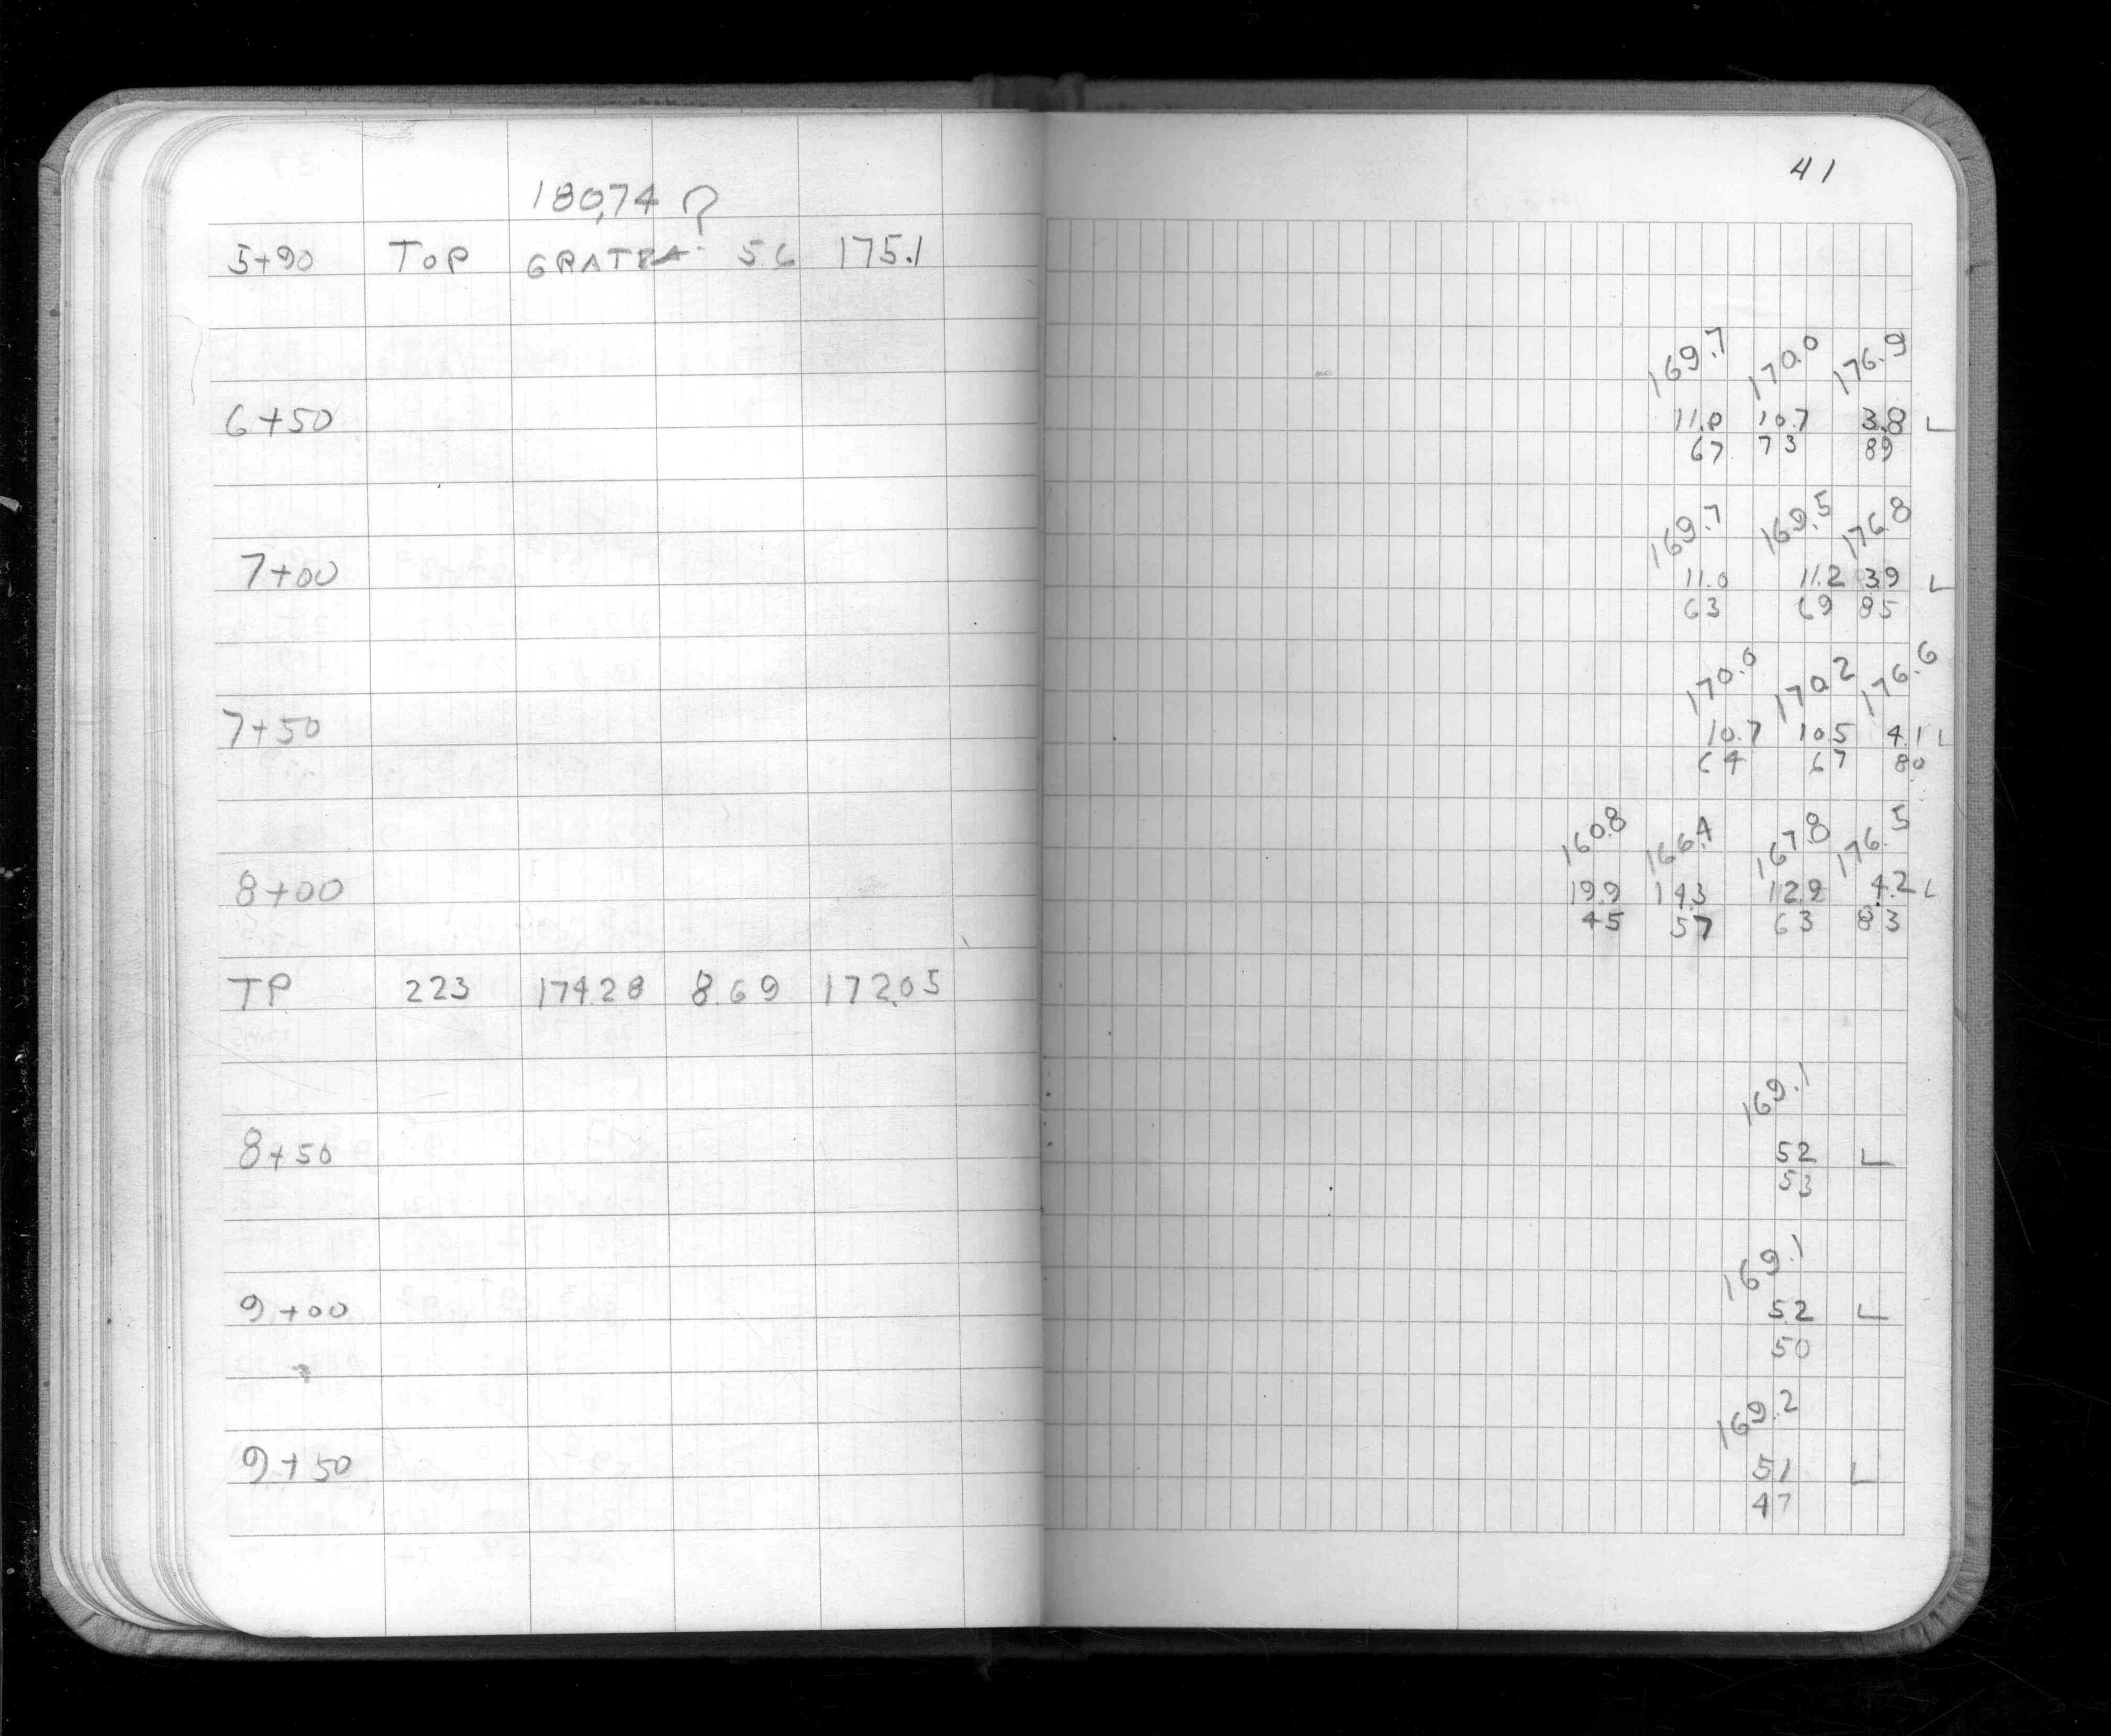 41
180.74 ?
5+90 TOP 5.6 175.1
169.7 170.0 176.9
6+50 11.0 10.7 3.8 L
67 73 89
169.7 169.5 176.8
7+00 11.0 11.2 3.9 L
63 69 85
170.0 170.2 176.6
7+50 10.7 10.5 4.1 L
64 67 80
160.8 166.4 167.8 176.5
8+00 19.9 14.3 12.9 4.2 L
45 57 63 83
TP 223 174.28 8.69 172.05
169.1
8+50 52 L
53
169.1
9+00 5.2 L
50
169.2
9+50 51 L
47